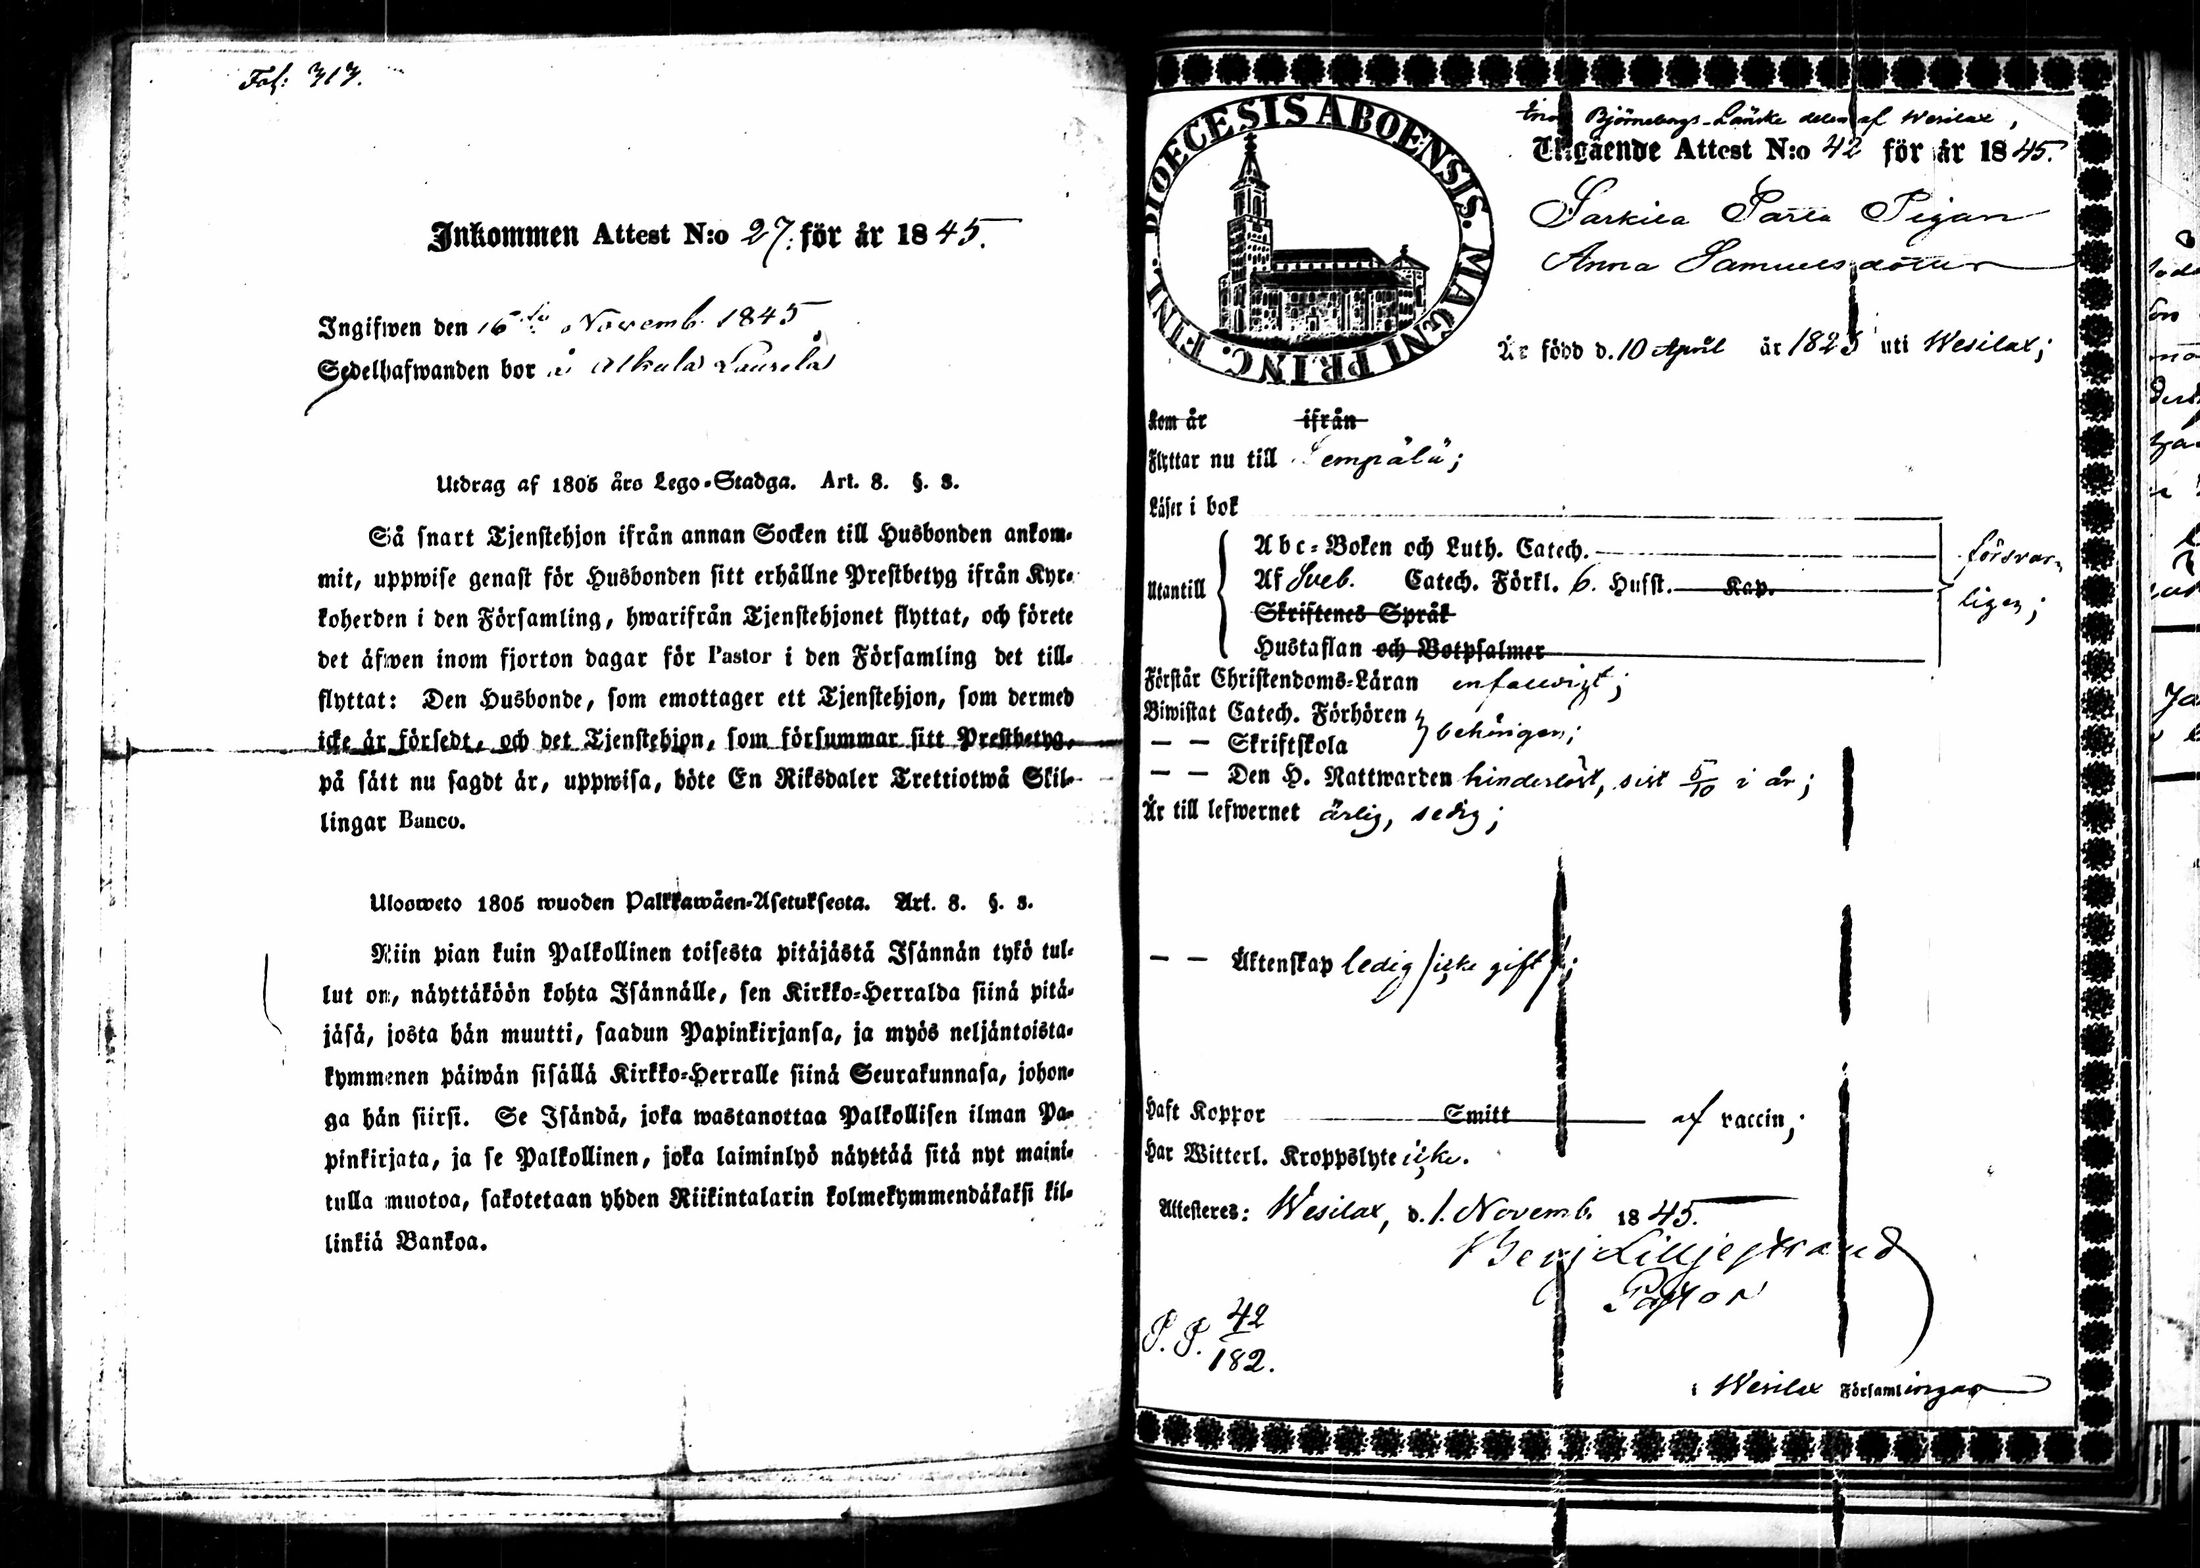 Fol: 313.
Inkommen Attest N:o 27. för år 1845.
Ingifwen den 16de Novemb. 1845
Sedelhafwanden bor å Alkula Laurila
Utdrag af 1805 års Lego-Stadga. Art. 8. §. 3.
Så snart Tjenstehjon ifrån annan Socken till Husbonden ankom-
mit, uppwise genast för Husbonden sitt erhållne Prestbetyg ifrån Kyr-
koherden i den Församling, hwarifrån Tjenstehjonet flyttat, och förete
det äfwen inom fjorton dagar för Pastor i den Församling det till-
flyttat: Den Husbonde, som emottager ett Tjenstehjon, som dermed
icke är försedt, och det Tjenstehjon, som försummar sitt Prestbetyg,
på sätt nu sagdt är, uppwisa, böte En Riksdaler Trettiotwå Skil-
lingar Banco.
Ulosweto 1805 wuoden Palkkawäen-Asetuksesta. Art. 8. §. 3.
Niin pian kuin Palkollinen toisesta pitäjästä Isännän tykö tul-
lut on, näyttäköön kohta Isännälle, sen Kirkko-Herralda siinä pitä-
jäsä, josta hän muutti, saadun Papinkirjansa, ja myös neljäntoista-
kymmenen päiwän sisällä Kirkko-Herralle siinä Seurakunnasa, johon-
ga hän siirsi. Se Isändä, joka wastanottaa Palkollisen ilman Pa-
pinkirjata, ja se Palkollinen, joka laiminlyö näyttää sitä nyt maini-
tulla muotoa, sakotetaan yhden Riikintalarin kolmekymmendäkaksi kil-
linkiä Bankoa.
DIOECESIS ABOENSIS. MAGNI PRINC. FINL.
Björneborgs-Länske delen af Wesilax,
Utgående Attest N:o 42 för år 1845.
Sarkila Parla Pigan
Anna Samuelsdotter
Är född d. 10 April år 1825 uti Wesilax;
Kom år ifrån
Flyttar nu till Lempälä;
Läser i bok
Utantill
Abc-Boken och Luth. Catech.
Af Sveb. Catech. Förkl. 6. Hufst. Kap.
Skriftenes Språk
Hustaflan och Botpsalmer
försvar-
ligen;
Förstår Christendoms-Läran enfalldigt;
Biwistat Catech. Förhören
— — Skriftskola
behörigen;
— — Den H. Nattwarden hinderlöst, sist 5/10 i år;
Är till lefwernet ärlig, sedig;
— — Äktenskap ledig /icke gift/;
Haft Koppor Smitt af vaccin;
Har Witterl. Kroppslyte icke.
Attesteres: Wesilax, d. 1. Novemb. 1845.
Benj Lilljestrand
Pastor
P. P. 42
182.
i Wesilax Församlingar